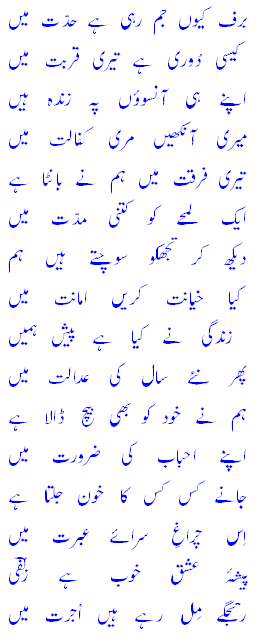 برف کیوں جم رہی ہے حدّت میں
کیسی دُوری ہے تیری قربت میں
اپنے ہی آنسوؤں پہ زندہ ہیں
میری آنکھیں مری کفالت میں
تیری فرقت میں ہم نے بانٹا ہے
ایک لمحے کو کتنی مدّت میں
دیکھ کر تجھکو سوچتے ہیں ہم
کیا خیانت کریں امانت میں
زندگی نے کیا ہے پیش ہمیں
پھر نئے سال کی عدالت میں
ہم نے خود کو بھی بیچ ڈالا ہے
اپنے احباب کی ضرورت میں
جانے کس کس کا خون جلتا ہے
اِس چراغِ سرائے عبرت میں
پیشۂ عشق خوب ہے زلفی
رتجگے مِل رہے ہیں اُجرت میں